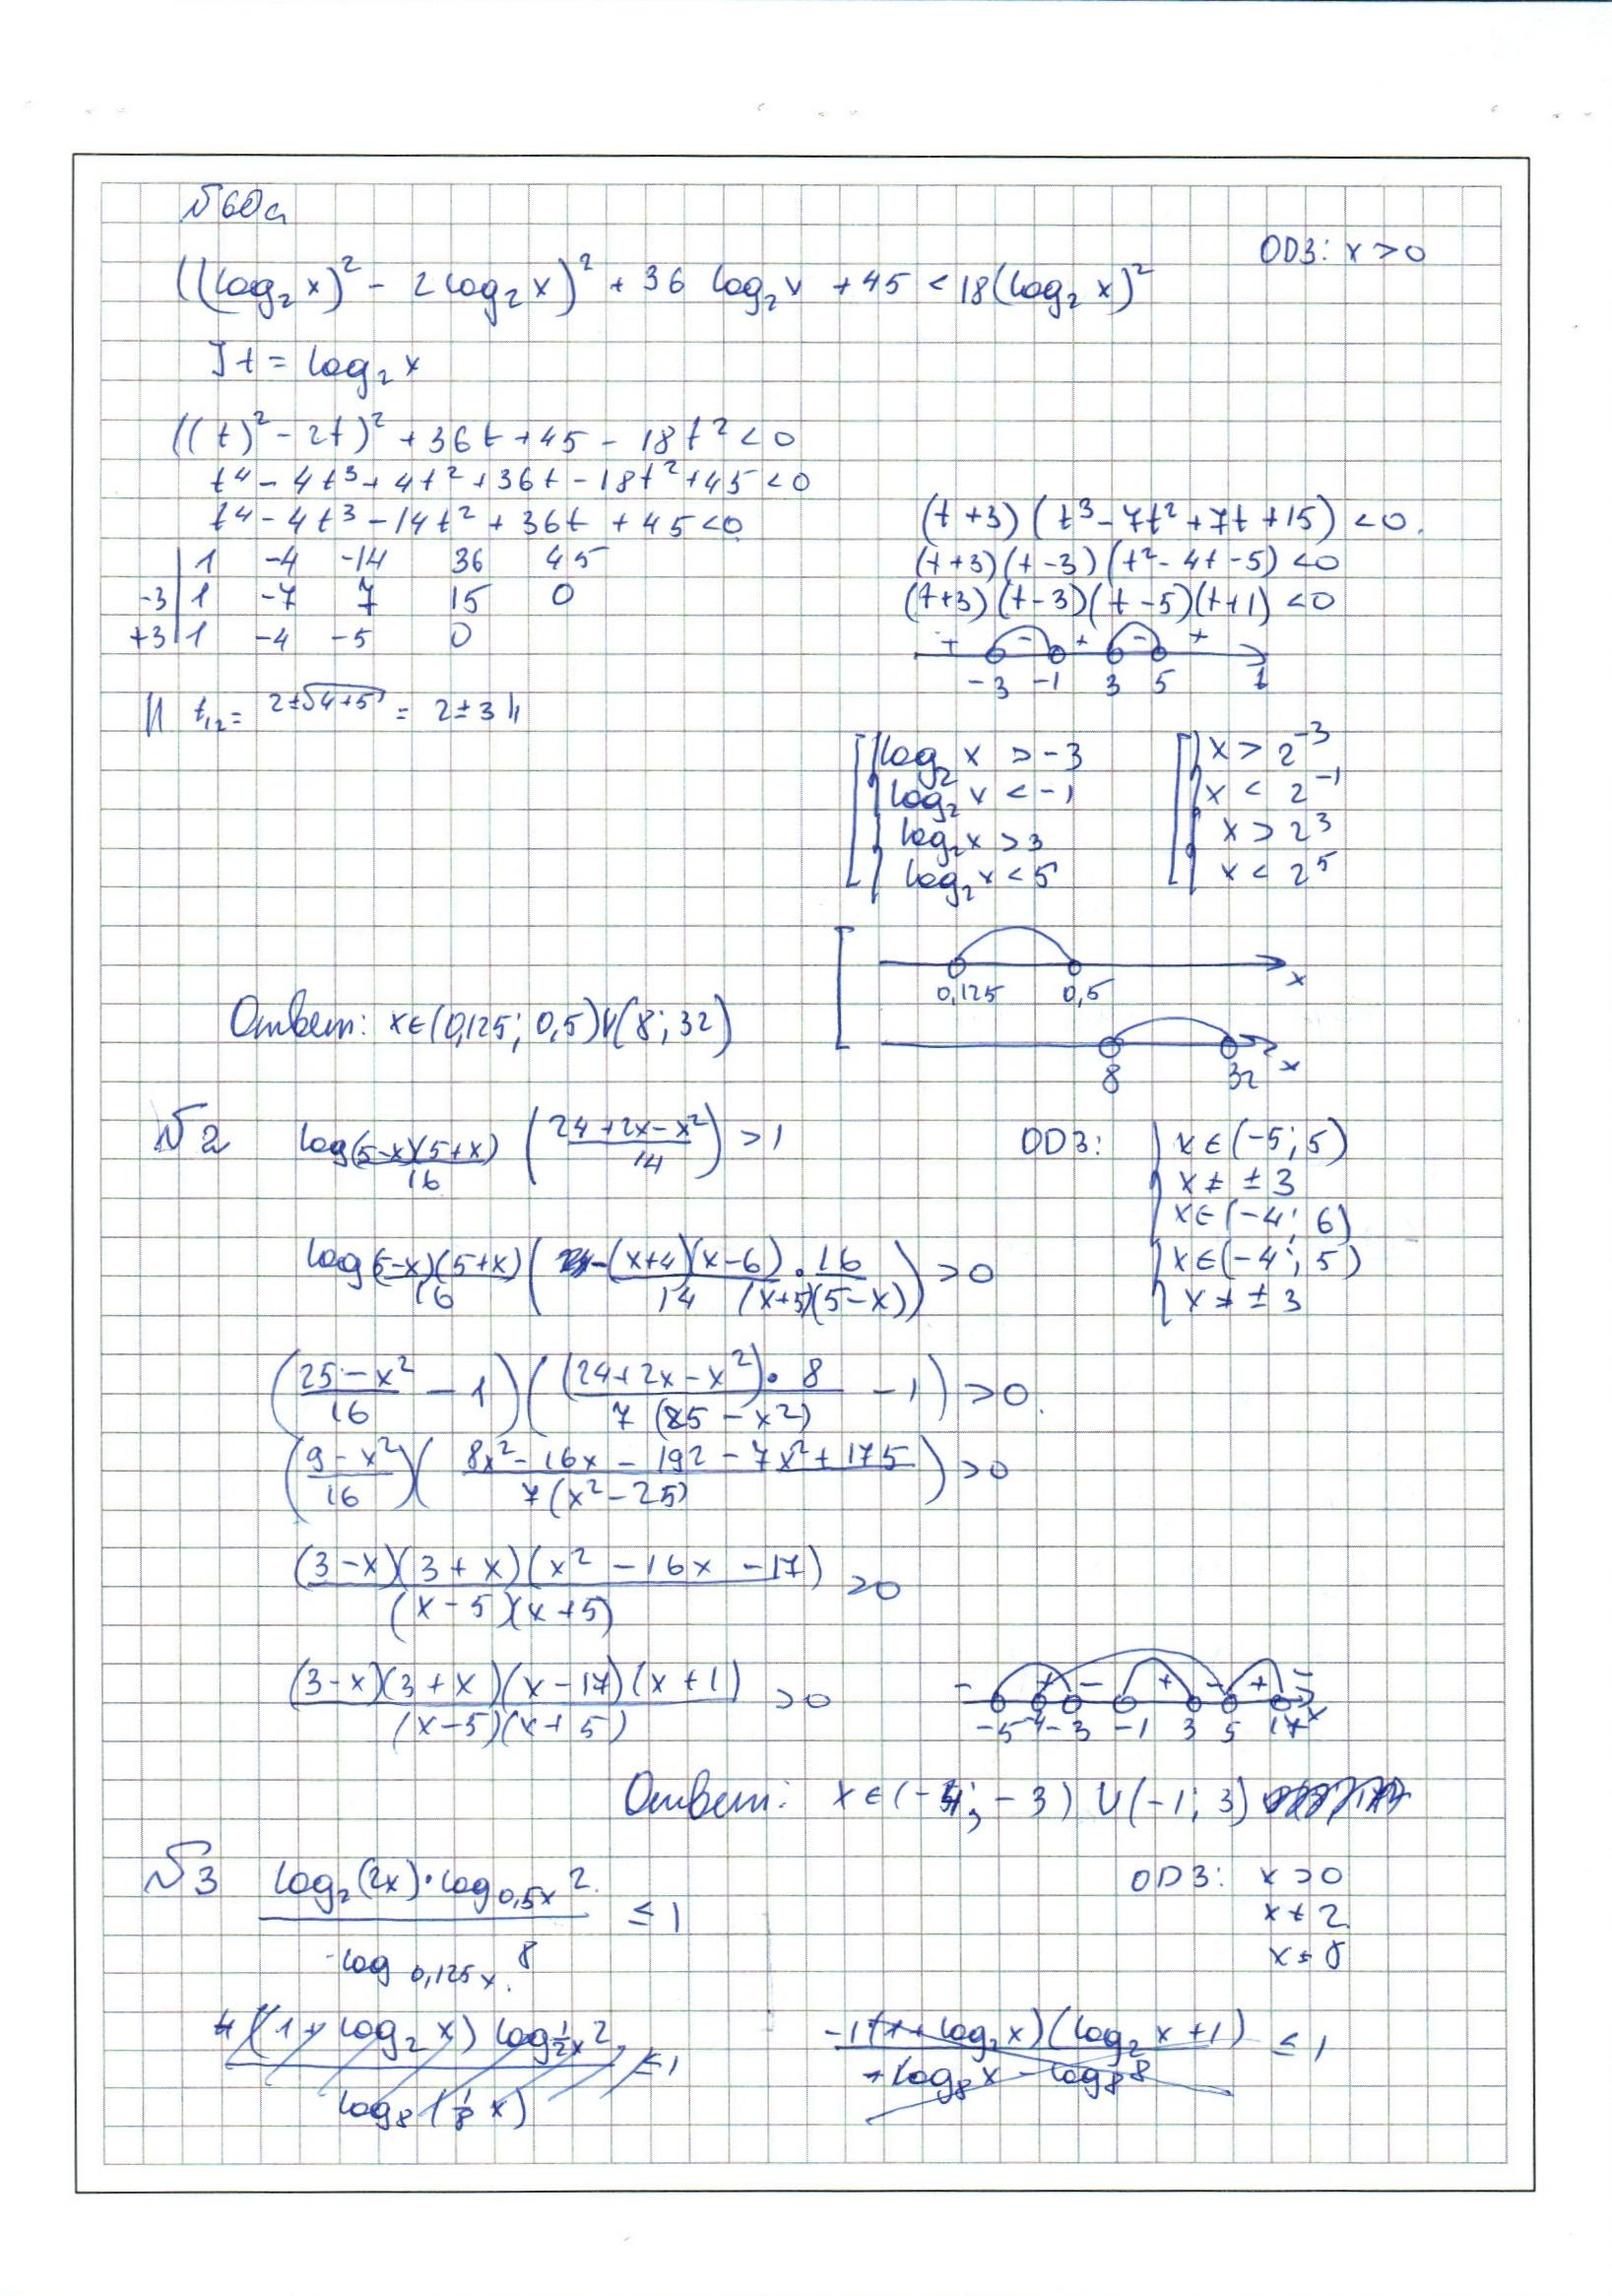 №60а
ОДЗ: x > 0
((log₂ x)² - 2 log₂ x)² + 36 log₂ x + 45 < 18 (log₂ x)²
] t = log₂ x
((t)² - 2t)² + 36t + 45 - 18t² < 0
t⁴ - 4t³ + 4t² + 36t - 18t² + 45 < 0
t⁴ - 4t³ - 14t² + 36t + 45 < 0
1 -4 -14 36 45
-3 | 1 -7 7 15 0
+3 | 1 -4 -5 0
|| t₁,₂ = 2±√(4+5) = 2±3 ||
(t+3)(t³ - 7t² + 7t + 15) < 0.
(t+3)(t-3)(t² - 4t - 5) < 0
(t+3)(t-3)(t-5)(t+1) < 0
+ - + - +
-3 -1 3 5 t
log₂ x > -3 x > 2⁻³
log₂ x < -1 x < 2⁻¹
log₂ x > 3 x > 2³
log₂ x < 5 x < 2⁵
0,125 0,5 x
8 32 x
Ответ: x∈(0,125; 0,5)∪(8; 32)
№2 log_((5-x)(5+x)/16) ((24+2x-x²)/14) > 1
ОДЗ: x∈(-5; 5)
x ≠ ±3
x∈(-4; 6)
x∈(-4; 5)
x ≠ ±3
log_((5-x)(5+x)/16) (-(x+4)(x-6)/14 · 16/((x+5)(5-x))) > 0
((25-x²)/16 - 1)((24+2x-x²)·8/(7(25-x²)) - 1) > 0.
((9-x²)/16)((8x² - 16x - 192 - 7x² + 175)/(7(x²-25))) > 0
(3-x)(3+x)(x² - 16x - 17)/((x-5)(x+5)) > 0
(3-x)(3+x)(x-17)(x+1)/((x-5)(x+5)) > 0
- + - + - + -
-5 -4 -3 -1 3 5 17 x
Ответ: x∈(-4; -3)∪(-1; 3)
№3 (log₂(2x)·log_(0,5x) 2)/(log_(0,125x) 8) ≤ 1
ОДЗ: x > 0
x ≠ 2
x ≠ 8
(1 + log₂ x) log_(½x) 2 / log₈(⅛ x) ≤ 1
-1(1+log₂ x)(log₂ x + 1)/(log₈ x - log₈ 8) ≤ 1